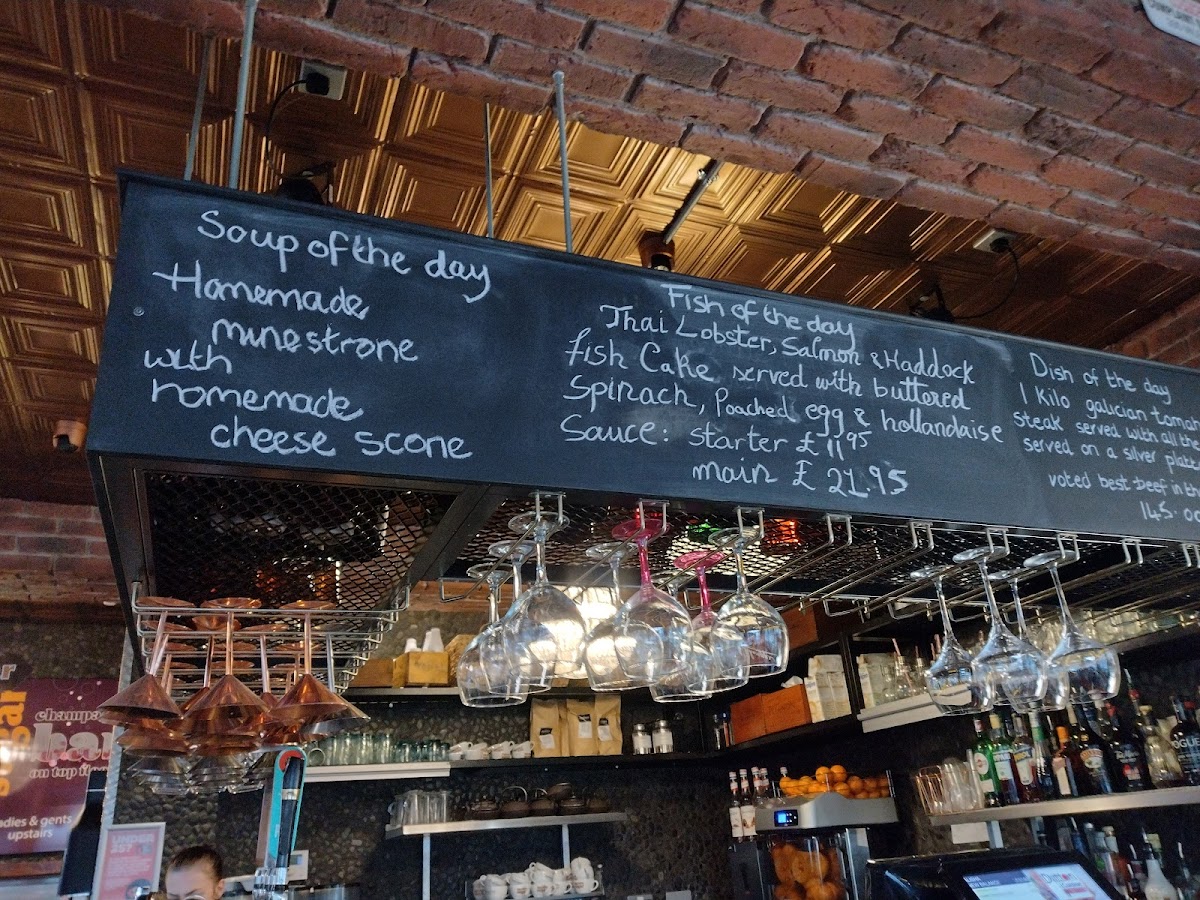 Soup of the day
Homemade
minestrone
with
homemade
cheese scone
Fish of the day
Thai Lobster, Salmon & Haddock
fish Cake served with buttered
Spinach, Poached egg & hollandaise
Sauce: starter £11.95
main £21.95
Dish of the day
1 Kilo galician tomah
steak served with all the
served on a silver platt
voted best beef in th
145.00
champa
bar
on top floor
adies & gents
upstairs
UNDER
25?